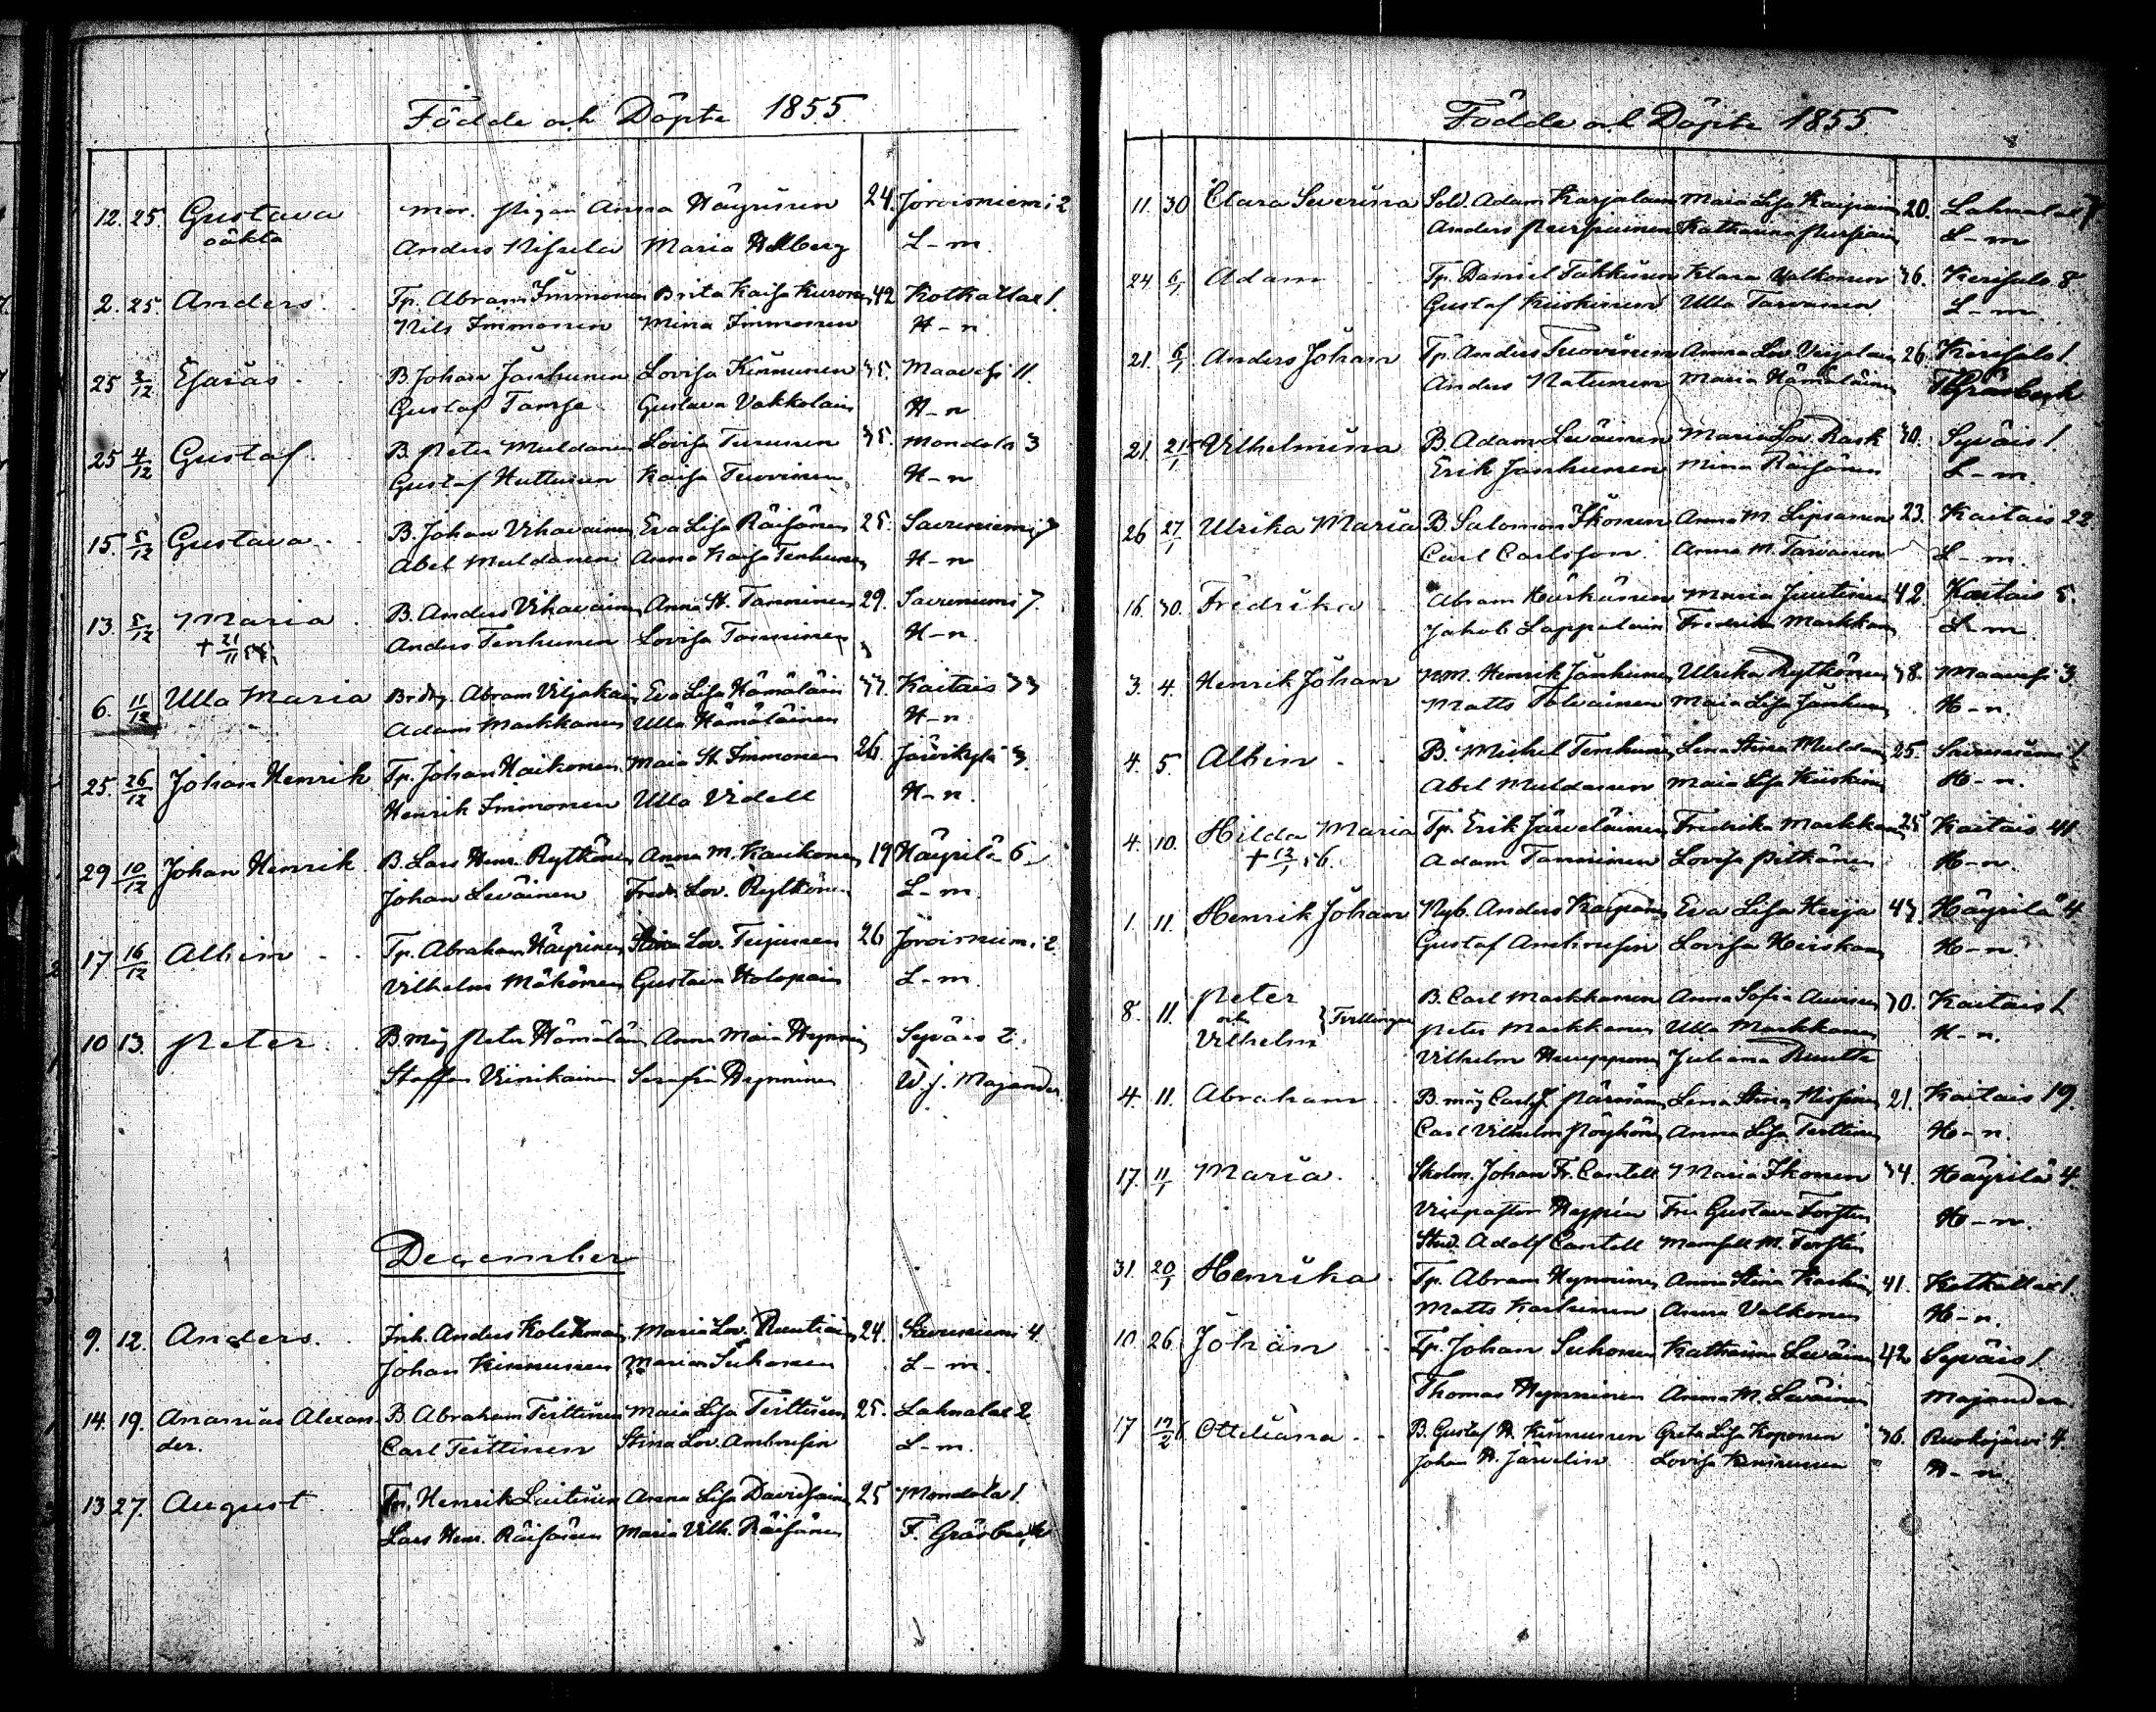 Födde och Döpte 1855.
12. 25. Gustava mor. Pigan Anna Häyrinen 24. Joroisniemi 2
oäkta Anders Nissela Maria Hallberg L-m.
2. 25. Anders Tp. Abram Immonen Brita Kaisa Kuronen 42 Kotkatlax 1.
Nils Immonen Mina Immonen H-n
25 2/12 Esaias B. Johan Jänhunen Lovisa Kinnunen 35. Maavesi 11.
Gustaf Gustava Vokkolain H-n
25 4/12 Gustaf. B. Peter Muldanen Lovisa Turunen 35. Mondola 3
Gustaf Huttunen Kaisa Tuovinen H-n
15. 5/12 Gustava B. Johan Vihavainen Eva Lisa Räisänen 25. Savuniemi 7
Abel Muldanen Anna Kaisa Tenhunen H-n
13. 5/12 Maria B. Anders Vihavainen Anna St. Tanninen 29. Savuniemi 7.
+ 21/11 Anders Tenhunen Lovisa Tanninen H-n.
6. 11/12 Ulla Maria Abram Viljakain Eva Lisa Hämäläin 33. Kaitais 33
Adam Markkanen Ulla Hämäläinen H-n
25. 26/12 Johan Henrik Tp. Johan Haikonen Maia St. Immonen 26. Järvikylä 3.
Henrik Immonen Ulla Videll H-n.
29 10/12 Johan Henrik B. Lars Henr. Rytkönen Anna M. Kaukonen 19 Häyrilä 6
Johan Leväinen Fredr. Lov. Rytkönen L-m.
17 16/12 Albin Tp. Abraham Häyrinen Stina Lov. 26 Joroisniemi 2.
Vilhelm Mähönen Gustava Holopain L-m.
10 13. Peter B.måg Peter Hämäläin Anna Maia Hynnin Syväis 2.
Staffan Vinikainen Serafia Hynninen W. J. Majander
December
9. 12. Anders. Inh. Anders Kolehmain Maria Lov. 24. Savuniemi 4
Johan Kinnunen Maria Suhonen L-m.
14. 19. Ananias Alexan B. Abraham Teittinen Maia Lisa Teittinen 25. Lahnalax 2
der. Carl Teittinen Stina Lov. Ambrusin L-m.
13 27. August Tp. Henrik Luitinen Anna Lisa Davidsain 25 Mondola 1.
Lars Henr. Räisänen Maria Vilh. Räisänen F. Gräsbeck
Födde och Döpte 1855.
11. 30 Clara Severina Sold. Adam Karjalain Maia Lisa Kaipain 20. Lahnalax 7
Anders Purpainen Katharina Purpain L-m
24 6/1 Adam Tp. Daniel Takkunen Klara Valkonen 36. Kerisalo 8
Gustaf Kiiskinen Ulla Tarvanen L-m.
21. 6/1 Anders Johan Tp. Anders Tuovinen Anna Lov. 26 Kerisalo 1.
Anders Natunen Maria Hämäläinen Gräsbeck
21. 21/1 Vilhelmina B. Adam Leväinen Maria Lov. Rask 30. Syväis 1.
Erik Jänhunen Mina Räisänen L-m.
26 27/1 Ulrika Maria B. Salomon Ikonen Anna M. Lipsanen 23. Kaitais 22
Carl Carlsson Anna M. Tarvanen L-m.
16. 30. Fredrika Abram Härkänen Maria Juutinen 42. Kaitais 5.
Jakob Lappalain Fredrika Markkan L-m.
3. 4. Henrik Johan Henrik Jänhunen Ulrika Rytkönen 38. Maavesi 3.
Matts Tolvainen Maia Lisa Jänhun H-n.
4. 5. Albin B. Michel Tenhunen Lena Stina Muldan 25. Savuniemi 1.
Abel Muldanen Maia Lisa Kiiskinen H-n.
4. 10. Hilda Maria Tp. Erik Järveläinen Fredrika Markkan 25 Kaitais 41
+ 13/1 56. Adam Tanninen Lovisa Pitkänen H-n.
1. 11. Henrik Johan Nyb. Anders Kaipain Eva Lisa Herja 43. Häyrilä 4
Gustaf Ambrusin Lovisa Heiskan H-n.
8. 11. Peter B. Carl Markkanen Anna Sofia Auvinen 30. Kaitais 1.
och Tvillingar Peter Markkanen Ulla Markkanen H-n.
Vilhelm Vilhelm Huupponen Juliana Ruutta
4. 11. Abraham B. måg Carl J. Pärnänen Lena Stina Nissinen 21. Kaitais 19.
Carl Vilhelm Pöyhönen Anna Lisa Terttinen H-n.
17. 11/1 Maria. Skolm. Johan Fr. Cantell Maria Ikonen 34. Häyrilä 4.
Vicepastor Fru Gustava Forstén H-n.
Stud. Adolf Cantell Mamsell M. Forstén
31. 20/1 Henrika Tp. Abram Hynninen Anna Stina Karhin 41. Kotkatlax 1.
Matts Karhinen Anna Valkonen H-n.
10. 26. Johan Tp. Johan Suhonen Katharina Leväinen 42 Syväis 1.
Thomas Hynninen Anna M. Leväinen Majander
17 17/2 Otteliana B. Gustaf A. Kinnunen Greta Lisa Koponen 36. Ruokojärvi 4.
Johan A. Järvelin Lovisa Kinnunen H-n.